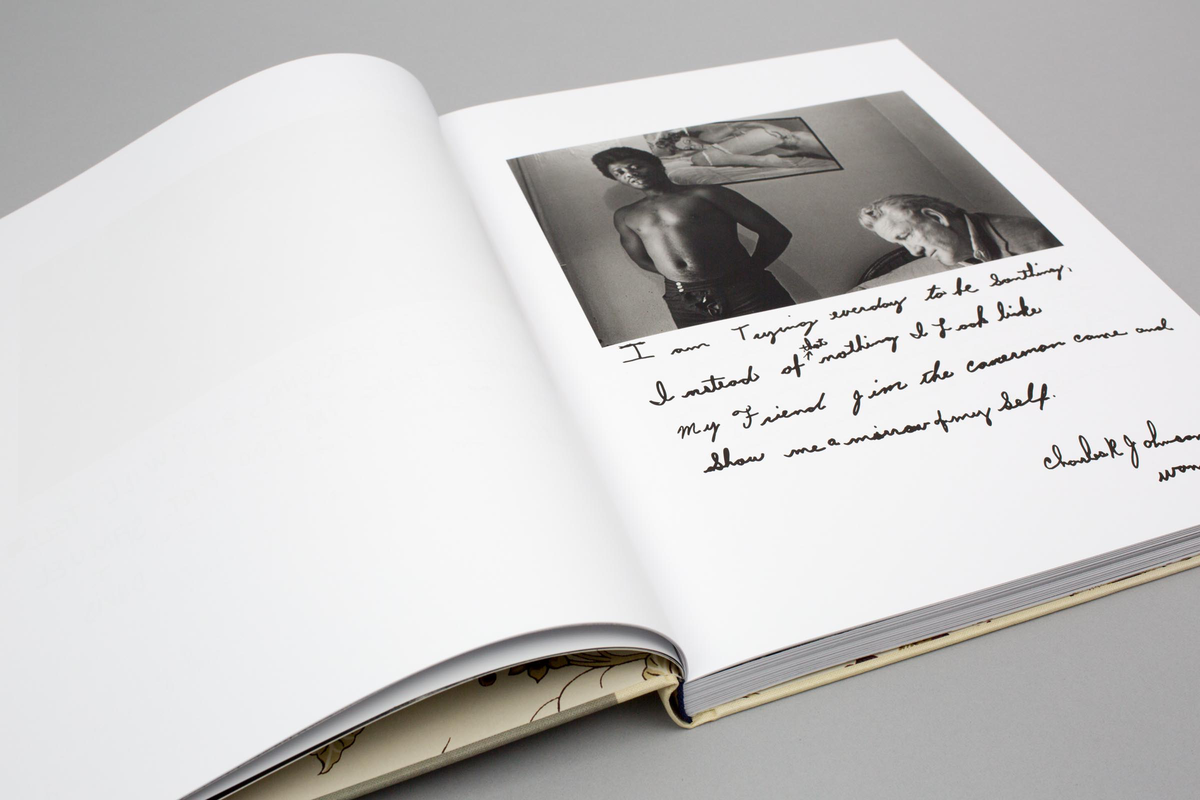 I am Trying everday to be Somthing,
Instead of that nothing I Look like
my Friend Jim the camerman came and
Show me a mirrow of my Self.
Charles R Johnson